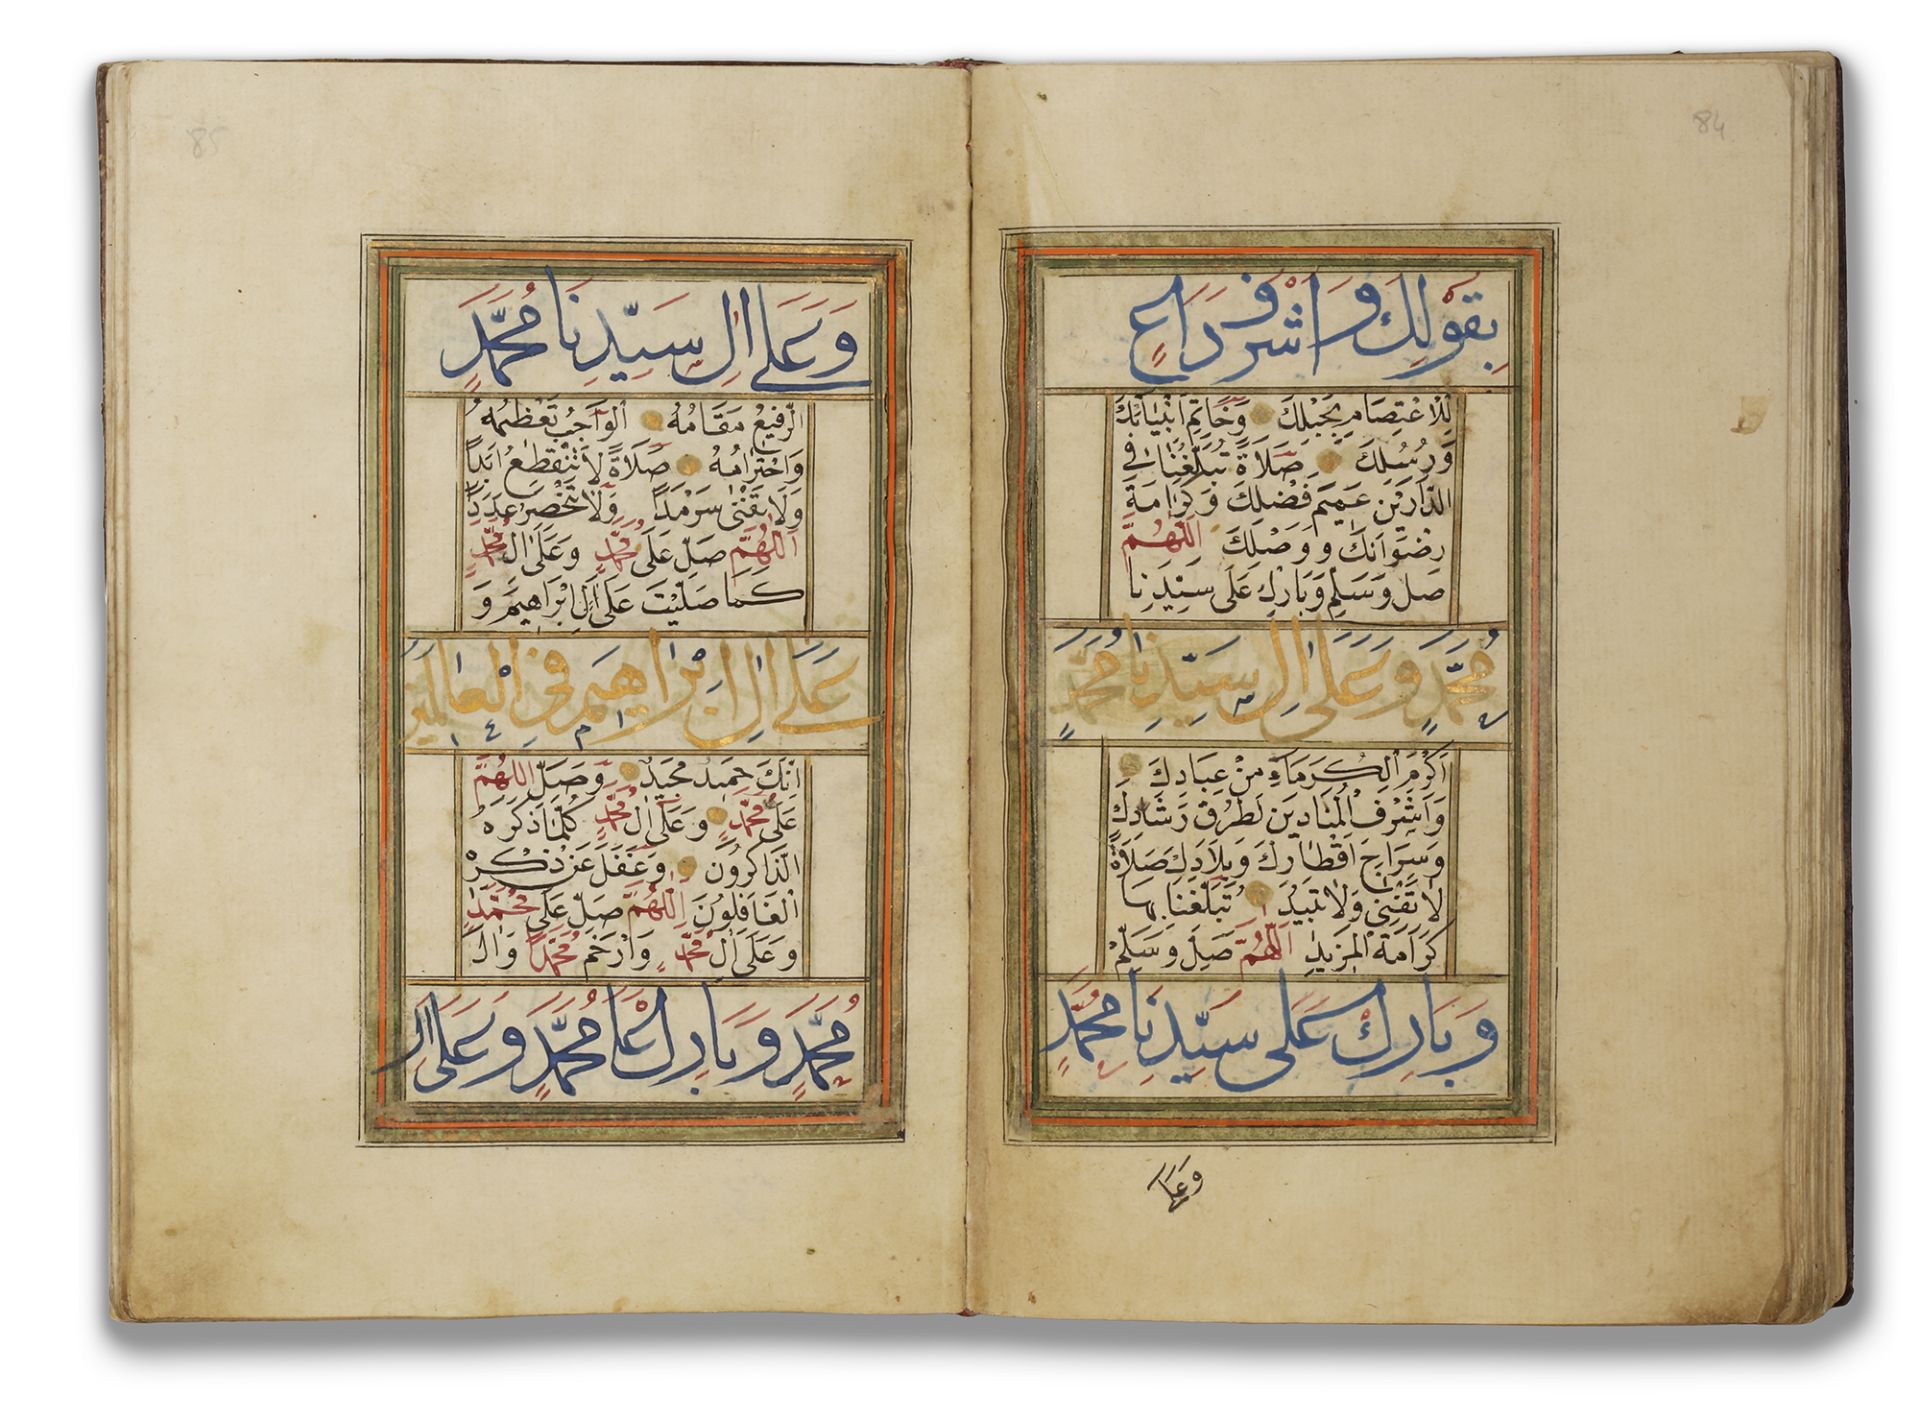 84
بِقَوْلِكَ وَاَشْرَفَ دَاعٍ
لِلْاِعْتِصَامِ بِحَبْلِكَ وَخَاتِمِ اَنْبِيَائِكَ
وَرُسُلِكَ صَلَاةً تُبَلِّغُنَا فِي
الدَّارَيْنِ عَمِيمَ فَضْلِكَ وَكَرَامَةَ
رِضْوَانِكَ وَوَصْلِكَ اَللّٰهُمَّ
صَلِّ وَسَلِّمْ وَبَارِكْ عَلَى سَيِّدِنَا
مُحَمَّدٍ وَعَلَى اٰلِ سَيِّدِنَا مُحَمَّدٍ
اَكْرَمِ الْكُرَمَاءِ مِنْ عِبَادِكَ
وَاَشْرَفِ الْمُنَادِينَ لِطُرُقِ رَشَادِكَ
وَسِرَاجِ اَقْطَارِكَ وَبِلَادِكَ صَلَاةً
لَا تَفْنَى وَلَا تَبِيدُ تُبَلِّغُنَا بِهَا
كَرَامَةَ الْمَزِيدِ اَللّٰهُمَّ صَلِّ وَسَلِّمْ
وَبَارِكْ عَلَى سَيِّدِنَا مُحَمَّدٍ
وعلى
85
وَعَلَى اٰلِ سَيِّدِنَا مُحَمَّدٍ
الرَّفِيعِ مَقَامُهُ اَلْوَاجِبِ تَعْظِيمُهُ
وَاحْتِرَامُهُ صَلَاةً لَا تَنْقَطِعُ اَبَدًا
وَلَا تَفْنَى سَرْمَدًا وَلَا تَنْحَصِرُ عَدَدًا
اَللّٰهُمَّ صَلِّ عَلَى مُحَمَّدٍ وَعَلَى اٰلِ مُحَمَّدٍ
كَمَا صَلَّيْتَ عَلَى اٰلِ اِبْرَاهِيمَ وَ
عَلَى اٰلِ اِبْرَاهِيمَ فِي الْعَالَمِينَ
اِنَّكَ حَمِيدٌ مَجِيدٌ وَصَلِّ اللّٰهُمَّ
عَلَى مُحَمَّدٍ وَعَلَى اٰلِ مُحَمَّدٍ كُلَّمَا ذَكَرَهُ
الذَّاكِرُونَ وَغَفَلَ عَنْ ذِكْرِهِ
الْغَافِلُونَ اَللّٰهُمَّ صَلِّ عَلَى مُحَمَّدٍ
وَعَلَى اٰلِ مُحَمَّدٍ وَارْحَمْ مُحَمَّدًا وَاٰلَ
مُحَمَّدٍ وَبَارِكْ عَلَى مُحَمَّدٍ وَعَلَى اٰلِ